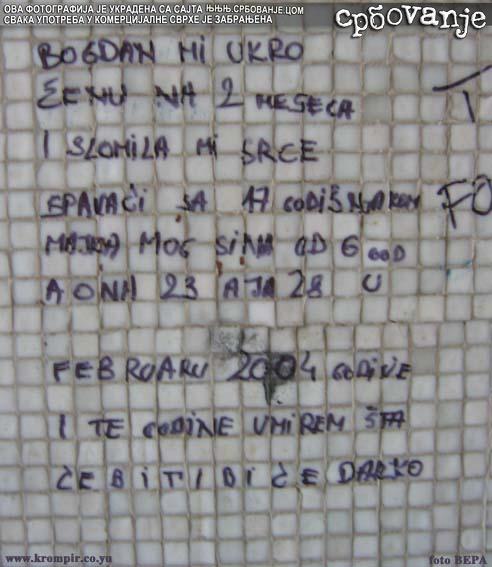 ОВА ФОТОГРАФИЈА ЈЕ УКРАДЕНА СА САЈТА ЊЊЊ.СРБОВАЊЕ.ЦОМ
СВАКА УПОТРЕБА У КОМЕРЦИЈАЛНЕ СВРХЕ ЈЕ ЗАБРАЊЕНА
србовanje
BOGDAN MI UKRO
ŽENU NA 2 MESECA
I SLOMILA MI SRCE
SPAVAĆI SA 17 GODIŠNJAKOM
MAJKA MOG SINA OD 6 GOD
A ONA 23 A JA 28 U
FEBRUARU 2004 GODINE
I TE GODINE UMIREM ŠTA
ĆE BITI BIĆE DARKO
T
FO
www.krompir.co.yu
foto ВЕРА